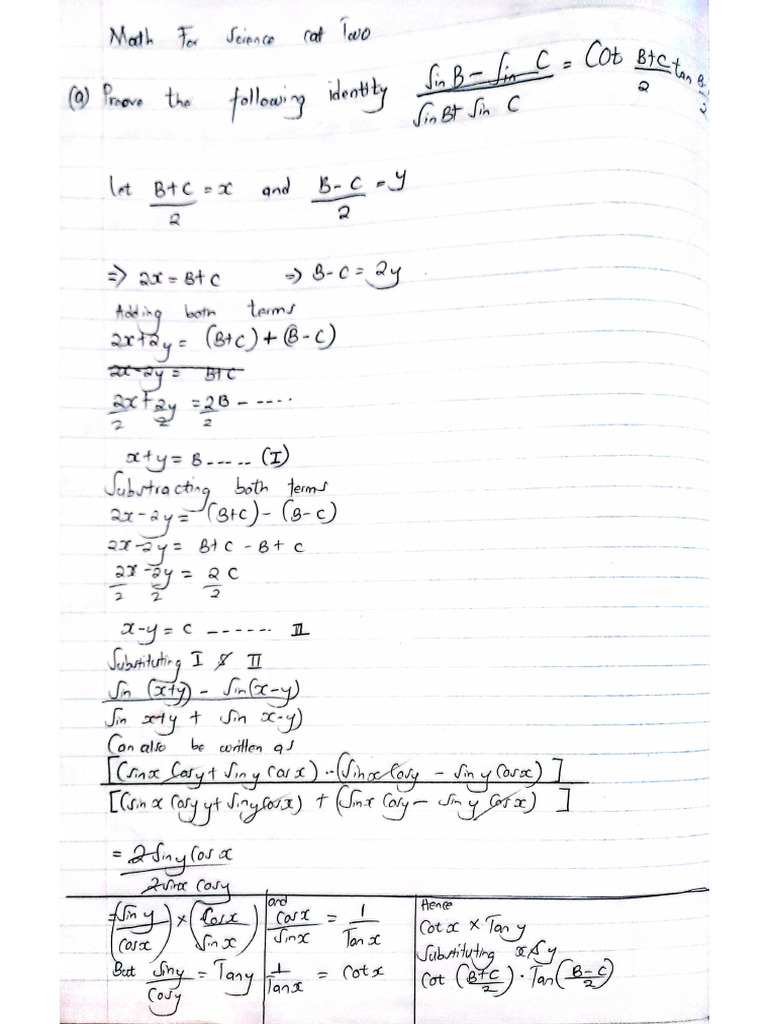 Math For Science cat Two
(a) Proove the following identity (Sin B - Sin C)/(Sin B+ Sin C) = Cot (B+C)/2 tan B-/2
let (B+C)/2 = x and (B-C)/2 = y
=> 2x = B+C => B-C = 2y
Adding both terms
2x+2y = (B+C) + (B-C)
2x-2y = B+C
2x/2 + 2y/2 = 2B/2 - ....
x+y = B ..... (I)
Substracting both terms
2x-2y = (B+C) - (B-C)
2x-2y = B+C - B + C
2x/2 - 2y/2 = 2C/2
x-y = C ...... II
Substituting I & II
Sin (x+y) - Sin(x-y)
Sin x+y + Sin x-y)
Can also be written as
[(Sinx Cosy + Siny Cosx) - (Sinx Cosy - Siny Cosx)]
[(Sinx Cosy y + Siny Cosx) + (Sinx Cosy - Siny Cosx)]
= 2Siny Cosx
2Sinx Cosy
=(Sin y/Cosx) × (Cosx/Sinx)
But Siny/Cosy = Tany
and
Cosx/Sinx = 1/Tanx
1/Tanx = Cotx
Hence
Cotx × Tany
Substituting x & y
Cot (B+C/2) · Tan(B-C/2)